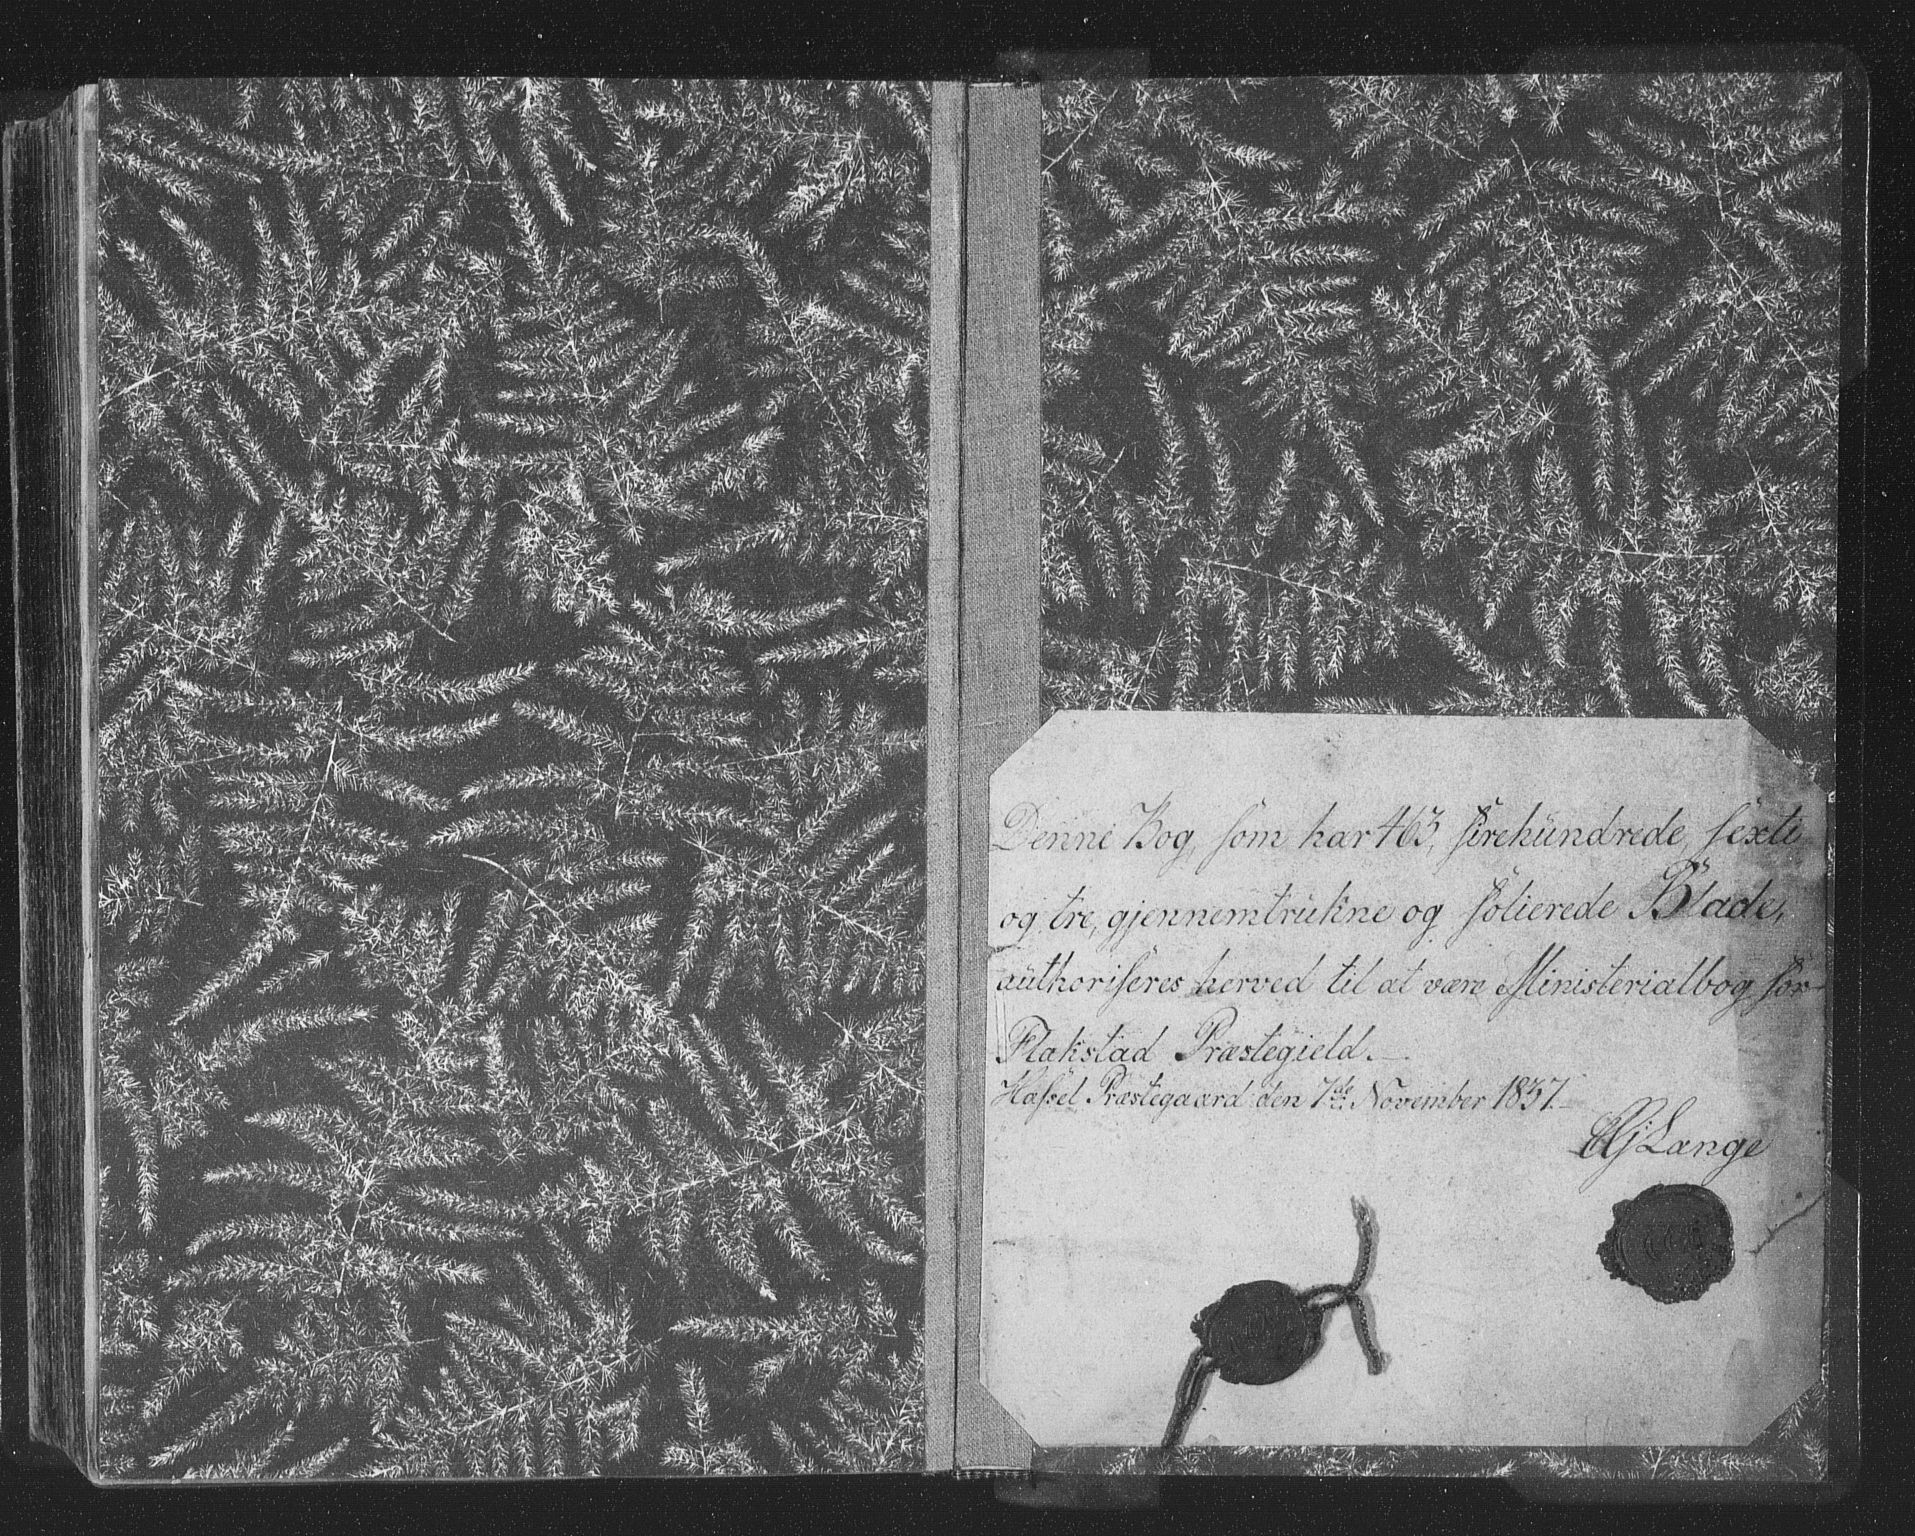 Denne Bog, som har 463, firehundrede, sexti
og tre, gjennemtrukne og folierede Blade,
authoriseres herved til at være Ministerialbog for
Flakstad Præstegield.
Hassel Præstegaard den 7de November 1837.
Lange